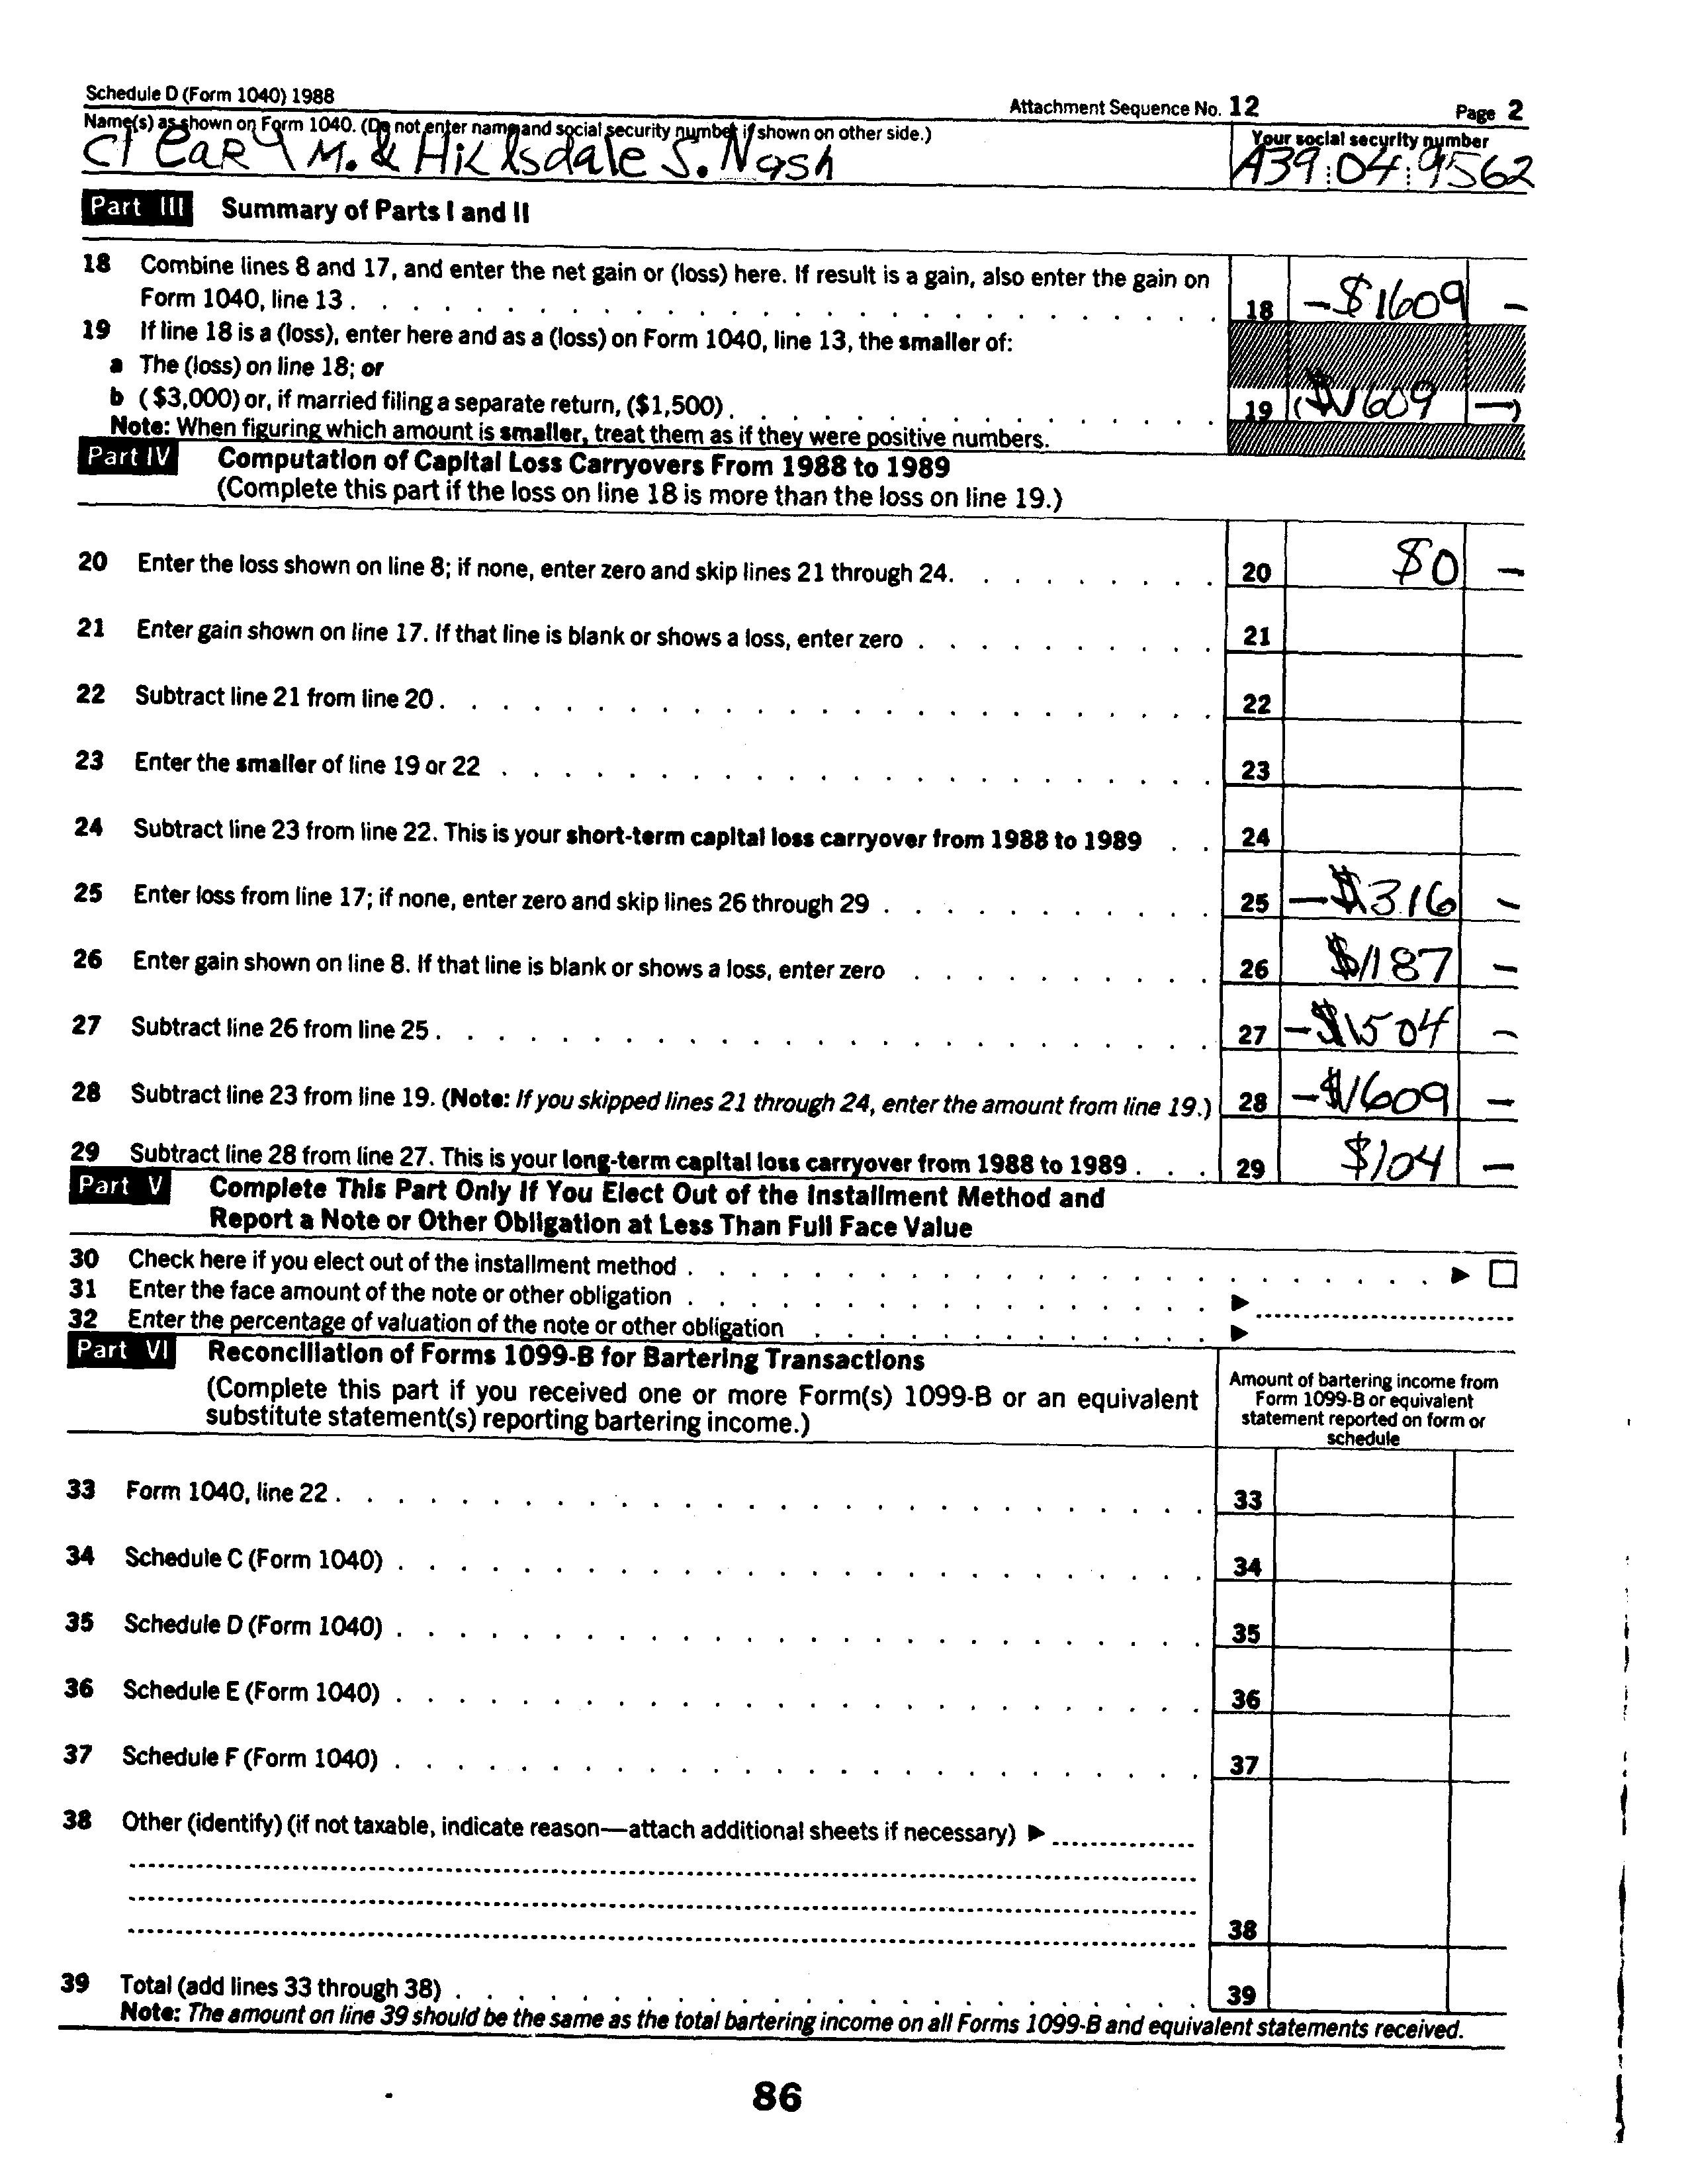 Schedule D (Form 1040) 1988
Attachment Sequence No. 12
Page 2
Name(s) as shown on Form 1040. (Do not enter name and social security number if shown on other side.)
Your social security number
M. & Hillsdale S. Nash
A39:04:9562
Part III Summary of Parts I and II
18 Combine lines 8 and 17, and enter the net gain or (loss) here. If result is a gain, also enter the gain on
Form 1040, line 13 . . . 18 -$1609 -
19 If line 18 is a (loss), enter here and as a (loss) on Form 1040, line 13, the smaller of:
a The (loss) on line 18; or
b ($3,000) or, if married filing a separate return, ($1,500) . . . 19 ($1609 -)
Note: When figuring which amount is smaller, treat them as if they were positive numbers.
Part IV Computation of Capital Loss Carryovers From 1988 to 1989
(Complete this part if the loss on line 18 is more than the loss on line 19.)
20 Enter the loss shown on line 8; if none, enter zero and skip lines 21 through 24. . . . 20 $0 -
21 Enter gain shown on line 17. If that line is blank or shows a loss, enter zero . . . 21
22 Subtract line 21 from line 20 . . . 22
23 Enter the smaller of line 19 or 22 . . . 23
24 Subtract line 23 from line 22. This is your short-term capital loss carryover from 1988 to 1989 . . 24
25 Enter loss from line 17; if none, enter zero and skip lines 26 through 29 . . . 25 -$316 -
26 Enter gain shown on line 8. If that line is blank or shows a loss, enter zero . . . 26 $1187 -
27 Subtract line 26 from line 25 . . . 27 -$1504 -
28 Subtract line 23 from line 19. (Note: If you skipped lines 21 through 24, enter the amount from line 19.) 28 -$1609 -
29 Subtract line 28 from line 27. This is your long-term capital loss carryover from 1988 to 1989 . . . 29 $104 -
Part V Complete This Part Only If You Elect Out of the Installment Method and
Report a Note or Other Obligation at Less Than Full Face Value
30 Check here if you elect out of the installment method . . . ▶ ☐
31 Enter the face amount of the note or other obligation . . . ▶
32 Enter the percentage of valuation of the note or other obligation . . . ▶
Part VI Reconciliation of Forms 1099-B for Bartering Transactions
(Complete this part if you received one or more Form(s) 1099-B or an equivalent
substitute statement(s) reporting bartering income.)
Amount of bartering income from
Form 1099-B or equivalent
statement reported on form or
schedule
33 Form 1040, line 22 . . . 33
34 Schedule C (Form 1040) . . . 34
35 Schedule D (Form 1040) . . . 35
36 Schedule E (Form 1040) . . . 36
37 Schedule F (Form 1040) . . . 37
38 Other (identify) (if not taxable, indicate reason—attach additional sheets if necessary) ▶
38
39 Total (add lines 33 through 38) . . . 39
Note: The amount on line 39 should be the same as the total bartering income on all Forms 1099-B and equivalent statements received.
86